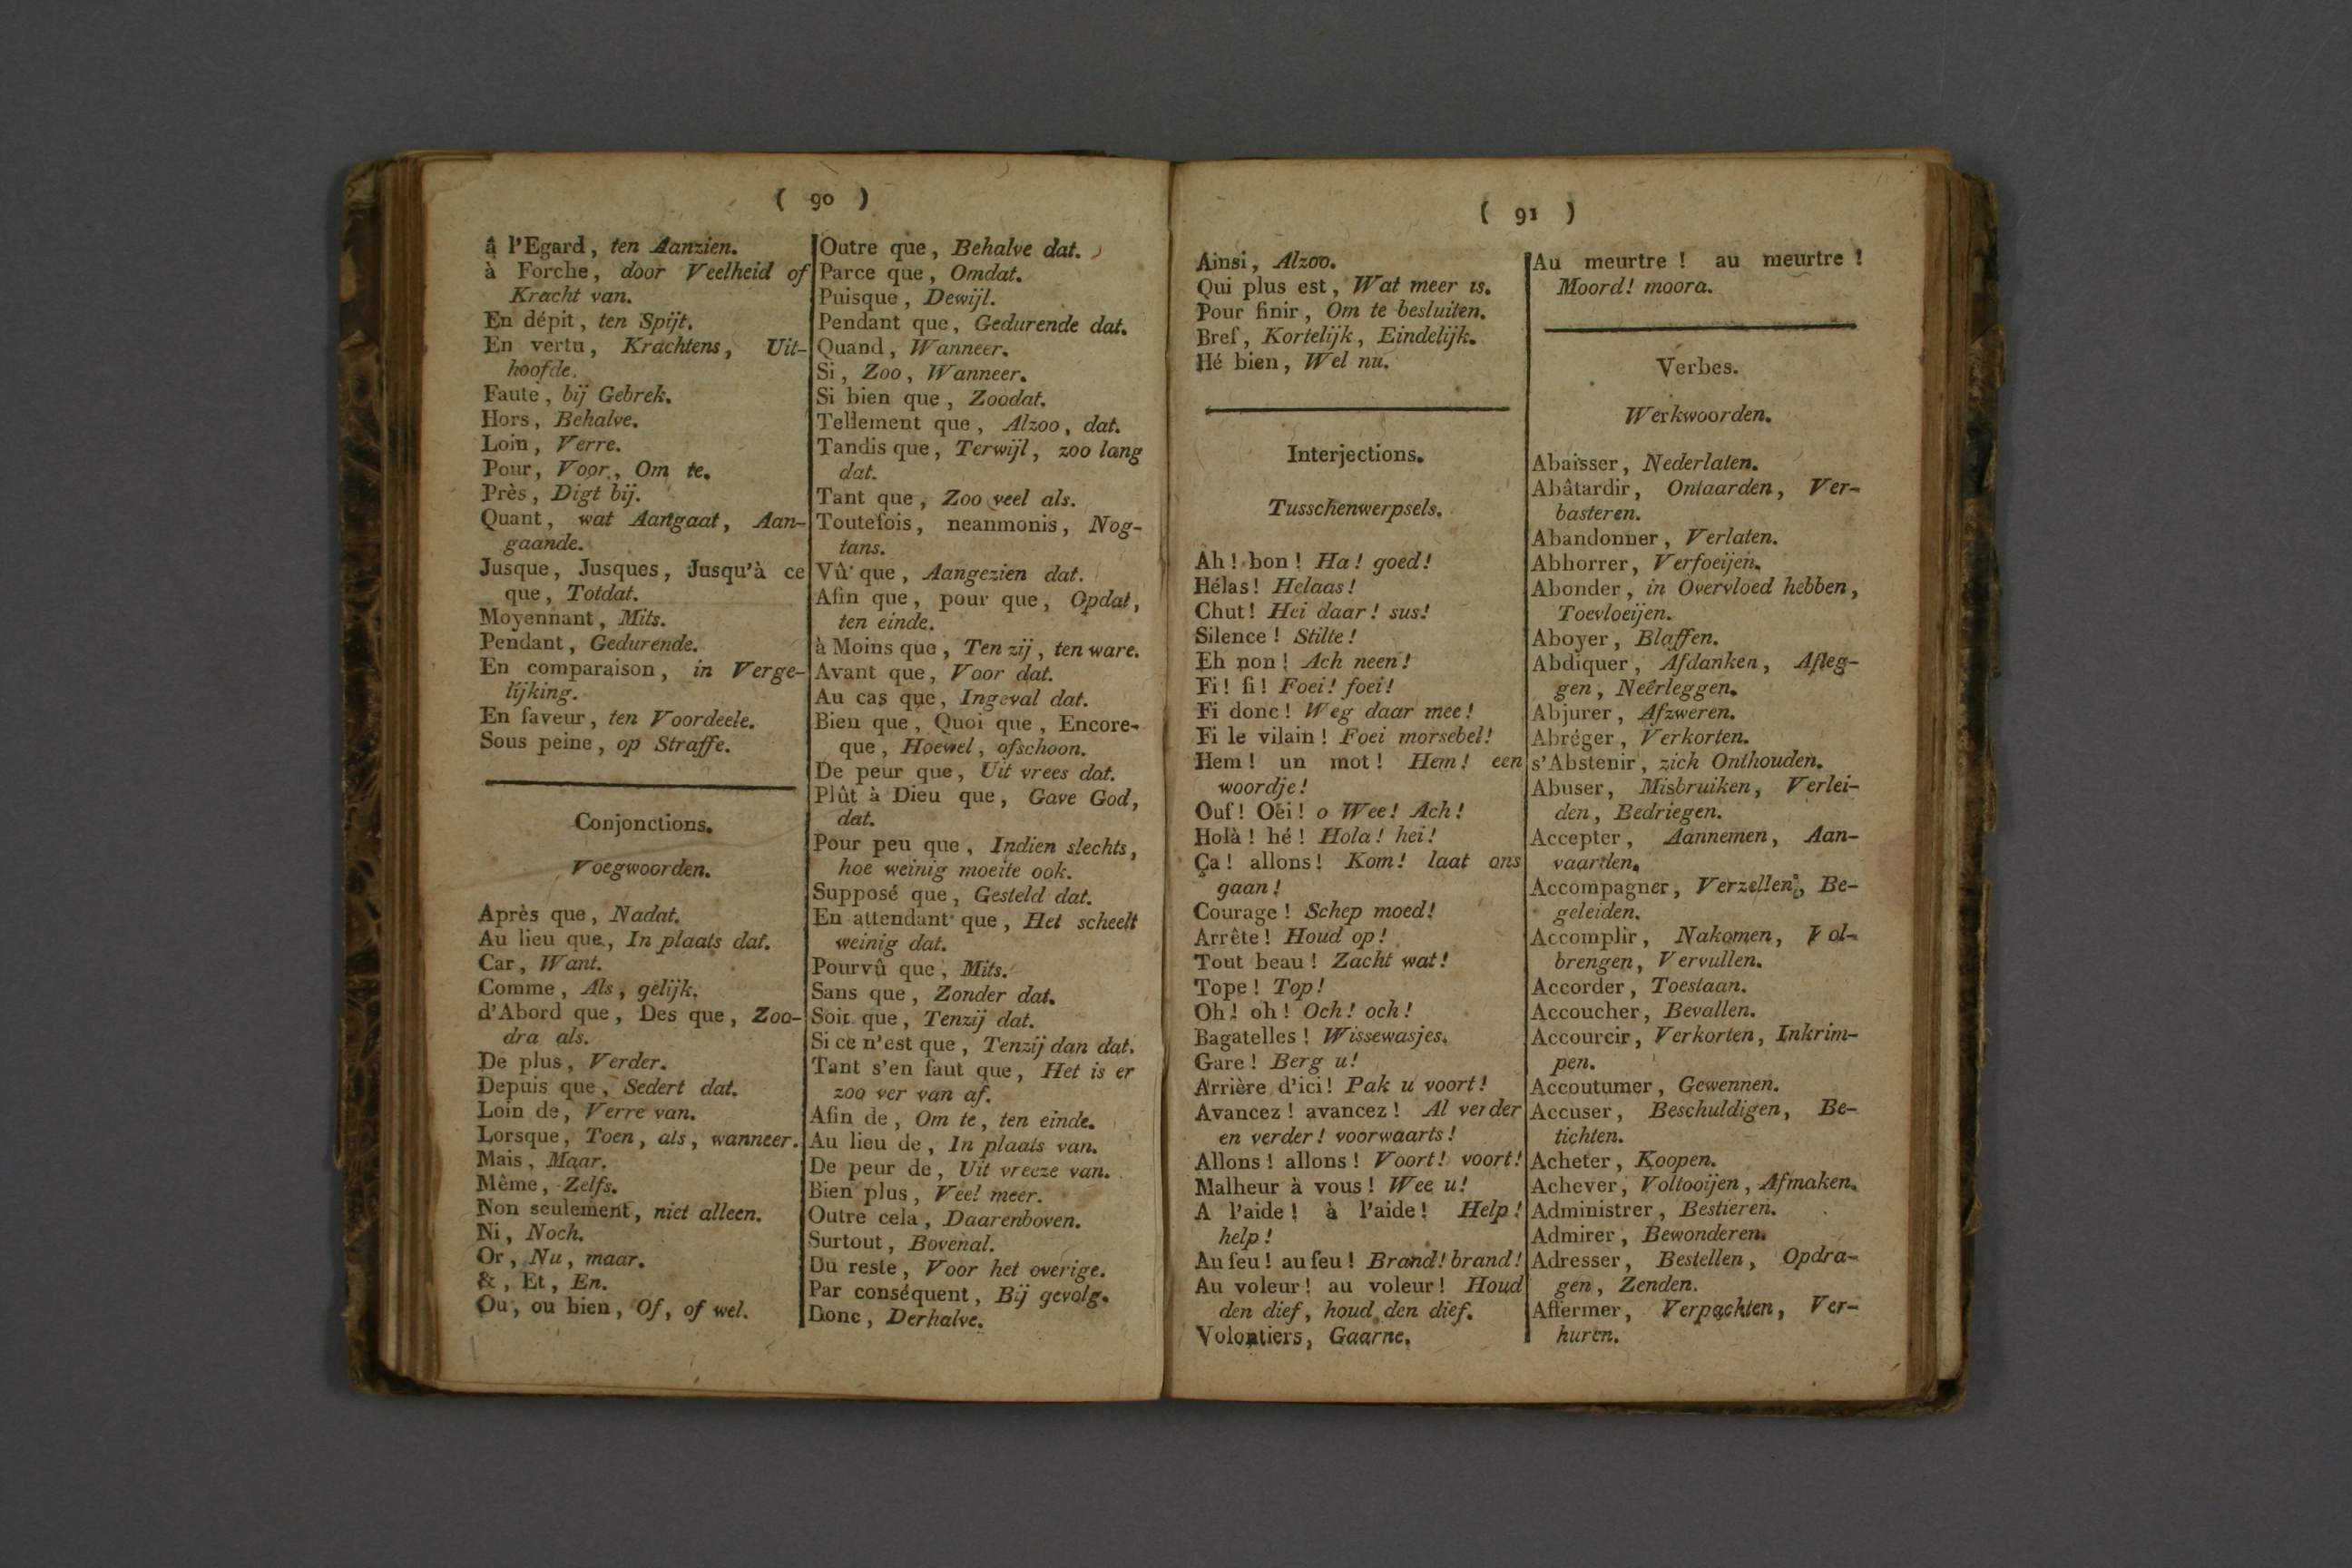 ( 90 )
à l'Egard, ten Aanzien.
à Forche, door Veelheid of
Kracht van.
En dépit, ten Spijt.
En vertu, Krachtens, Uit-
hoofde.
Faute, bij Gebrek.
Hors, Behalve.
Loin, Verre.
Pour, Voor, Om te.
Près, Digt bij.
Quant, wat Aangaat, Aan-
gaande.
Jusque, Jusques, Jusqu'à ce
que, Totdat.
Moyennant, Mits.
Pendant, Gedurende.
En comparaison, in Verge-
lijking.
En faveur, ten Voordeele.
Sous peine, op Straffe.
Conjonctions.
Voegwoorden.
Après que, Nadat.
Au lieu que, In plaats dat.
Car, Want.
Comme, Als, gelijk.
d'Abord que, Des que, Zoo-
dra als.
De plus, Verder.
Depuis que, Sedert dat.
Loin de, Verre van.
Lorsque, Toen, als, wanneer.
Mais, Maar.
Même, Zelfs.
Non seulement, niet alleen.
Ni, Noch.
Or, Nu, maar.
&, Et, En.
Ou, ou bien, Of, of wel.
Outre que, Behalve dat.
Parce que, Omdat.
Puisque, Dewijl.
Pendant que, Gedurende dat.
Quand, Wanneer.
Si, Zoo, Wanneer.
Si bien que, Zoodat.
Tellement que, Alzoo, dat.
Tandis que, Terwijl, zoo lang
dat.
Tant que, Zoo veel als.
Toutefois, neanmonis, Nog-
tans.
Vû que, Aangezien dat.
Afin que, pour que, Opdat,
ten einde.
à Moins que, Ten zij, ten ware.
Avant que, Voor dat.
Au cas que, Ingeval dat.
Bien que, Quoi que, Encore-
que, Hoewel, ofschoon.
De peur que, Uit vrees dat.
Plût à Dieu que, Gave God,
dat.
Pour peu que, Indien slechts,
hoe weinig moeite ook.
Supposé que, Gesteld dat.
En attendant que, Het scheelt
weinig dat.
Pourvû que, Mits.
Sans que, Zonder dat.
Soit que, Tenzij dat.
Si ce n'est que, Tenzij dan dat.
Tant s'en faut que, Het is er
zoo ver van af.
Afin de, Om te, ten einde.
Au lieu de, In plaats van.
De peur de, Uit vreeze van.
Bien plus, Veel meer.
Outre cela, Daarenboven.
Surtout, Bovenal.
Du reste, Voor het overige.
Par conséquent, Bij gevolg.
Donc, Derhalve.
( 91 )
Ainsi, Alzoo.
Qui plus est, Wat meer is.
Pour finir, Om te besluiten.
Bref, Kortelijk, Eindelijk.
Hé bien, Wel nu.
Interjections.
Tusschenwerpsels.
Ah! bon! Ha! goed!
Hélas! Helaas!
Chut! Hei daar! sus!
Silence! Stilte!
Eh non! Ach neen!
Fi! fi! Foei! foei!
Fi donc! Weg daar mee!
Fi le vilain! Foei morsebel!
Hem! un mot! Hem! een
woordje!
Ouf! Oëi! o Wee! Ach!
Holà! hé! Hola! hei!
Ça! allons! Kom! laat ons
gaan!
Courage! Schep moed!
Arrête! Houd op!
Tout beau! Zacht wat!
Tope! Top!
Oh! oh! Och! och!
Bagatelles! Wissewasjes.
Gare! Berg u!
Arrière d'ici! Pak u voort!
Avancez! avancez! Al verder
en verder! voorwaarts!
Allons! allons! Voort! voort!
Malheur à vous! Wee u!
A l'aide! à l'aide! Help!
help!
Au feu! au feu! Brand! brand!
Au voleur! au voleur! Houd
den dief, houd den dief.
Volontiers, Gaarne.
Au meurtre! au meurtre!
Moord! moora.
Verbes.
Werkwoorden.
Abaisser, Nederlaten.
Abâtardir, Ontaarden, Ver-
basteren.
Abandonner, Verlaten.
Abhorrer, Verfoeijen.
Abonder, in Overvloed hebben,
Toevloeijen.
Aboyer, Blaffen.
Abdiquer, Afdanken, Afleg-
gen, Neêrleggen.
Abjurer, Afzweren.
Abréger, Verkorten.
s'Abstenir, zich Onthouden.
Abuser, Misbruiken, Verlei-
den, Bedriegen.
Accepter, Aannemen, Aan-
vaarden.
Accompagner, Verzellen, Be-
geleiden.
Accomplir, Nakomen, Vol-
brengen, Vervullen.
Accorder, Toestaan.
Accoucher, Bevallen.
Accourcir, Verkorten, Inkrim-
pen.
Accoutumer, Gewennen.
Accuser, Beschuldigen, Be-
tichten.
Acheter, Koopen.
Achever, Voltooijen, Afmaken.
Administrer, Bestieren.
Admirer, Bewonderen.
Adresser, Bestellen, Opdra-
gen, Zenden.
Affermer, Verpachten, Ver-
huren.